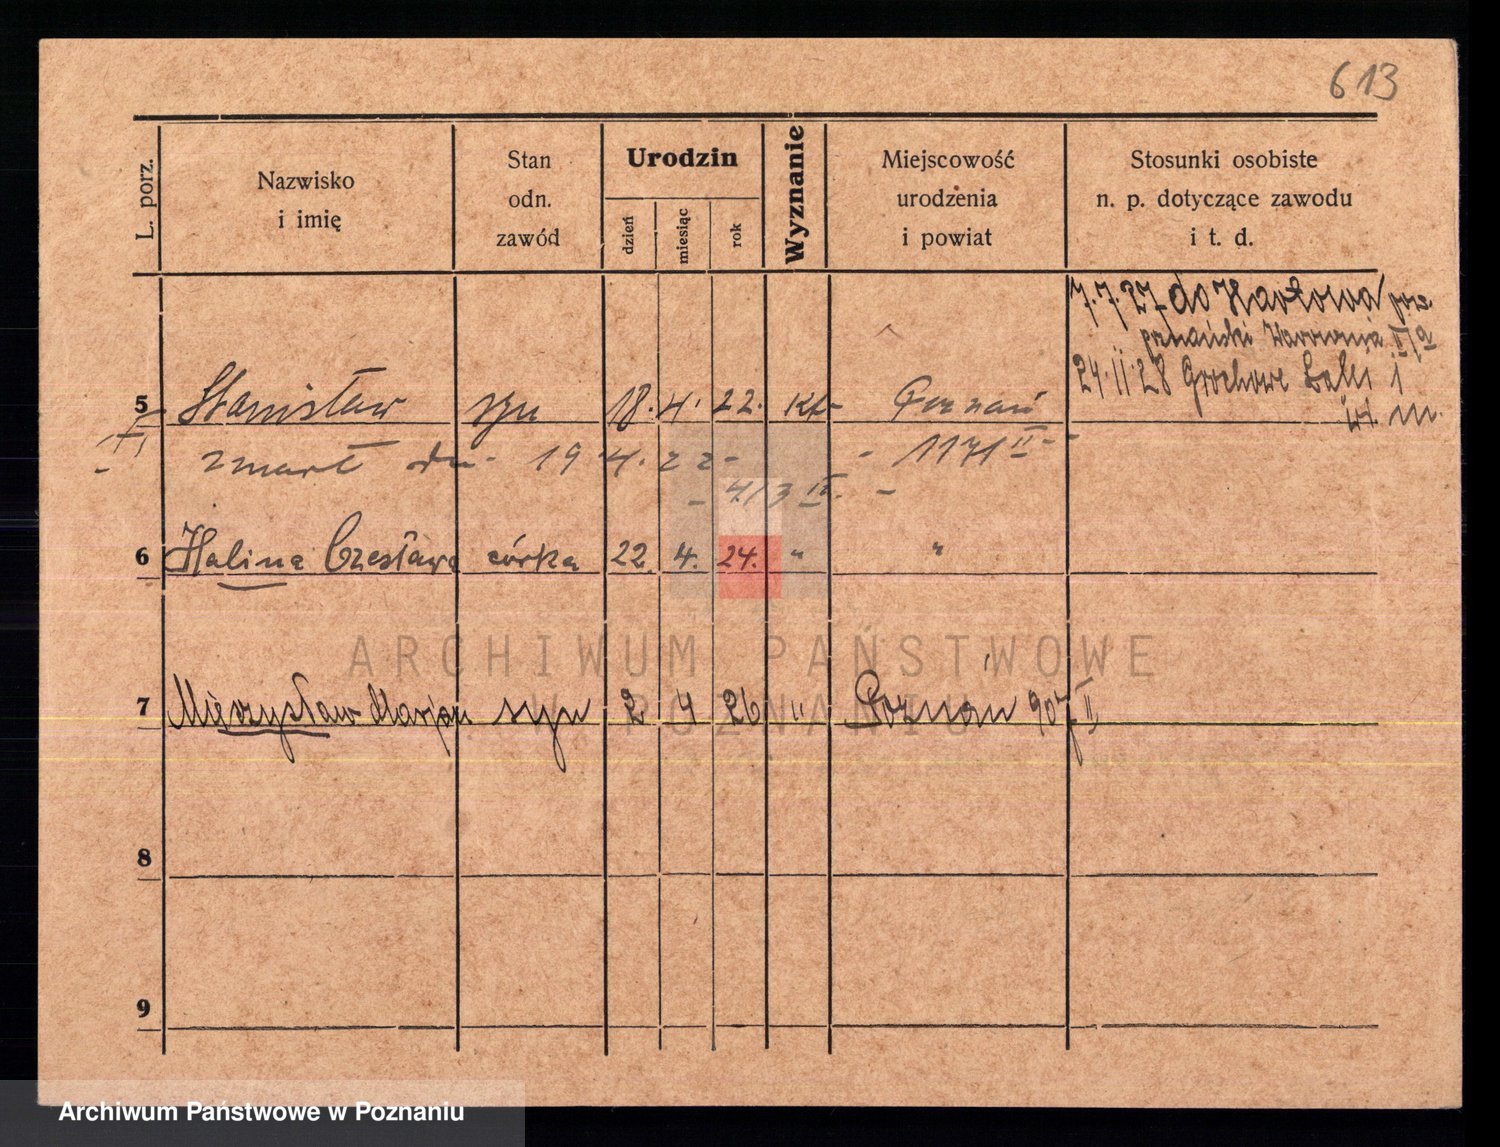 613
L. porz.
Nazwisko
i imię
Stan
odn.
zawód
Urodzin
dzień
miesiąc
rok
Wyznanie
Miejscowość
urodzenia
i powiat
Stosunki osobiste
n. p. dotyczące zawodu
i t. d.
7.7.27 do
24.11.28 Grochowe Łąki 1
5 Stanisław syn 18. 4. 22. kt- Poznań
zmarł dn. 19 4. 22- - 1171 II -
- 413 II. -
6 Halina Czesława córka 22. 4. 24. " "
ARCHIWUM PAŃSTWOWE
W POZNANIU
7 Mieczysław Marjan syn 2 4 26 " Poznań 907 II
8
9
Archiwum Państwowe w Poznaniu